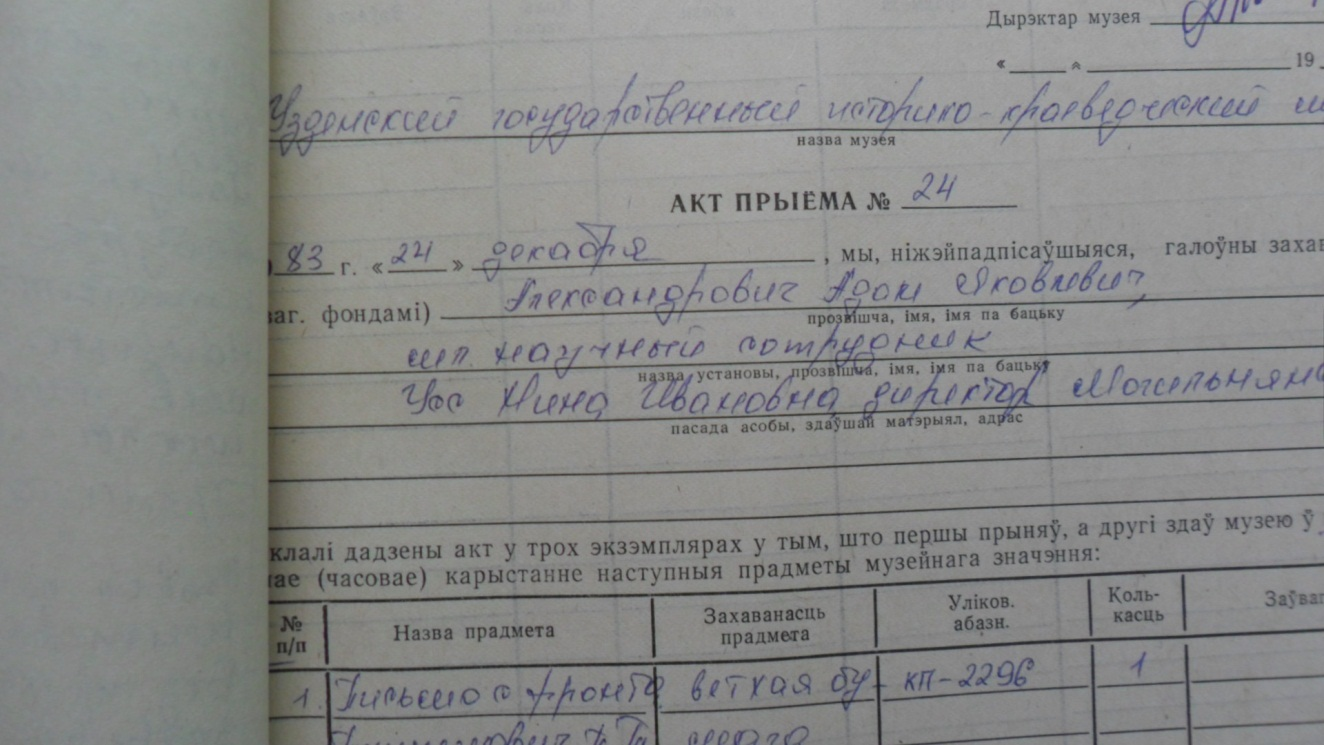 Дырэктар музея
« » 19
Узденский государственный историко-краеведческий
назва музея
АКТ ПРЫЁМА № 24
83 г. «24» декабря , мы, ніжэйпадпісаўшыяся, галоўны захав
заг. фондамі) Александрович Адам Яковлевич,
прозвішча, імя, імя па бацьку
мл. научный сотрудник
назва установы, прозвішча, імя, імя па бацьку
Усс Нина Ивановна директор
пасада асобы, здаўшай матэрыял, адрас
клалі дадзены акт у трох экзэмплярах у тым, што першы прыняў, а другі здаў музею ў
нае (часовае) карыстанне наступныя прадметы музейнага значэння:
№ п/п Назва прадмета Захаванасць прадмета Уліков. абазн. Коль-касць Заўваг
1. Письмо с фронта ветхая бу- кп-2296 1